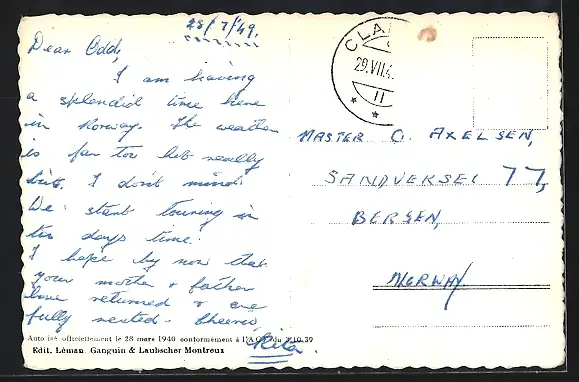 28/7/49.
Dear Odd,
I am having
a splendid time here
in Norway. The weather
is far too hot really
but I don't mind.
We start touring in
two days time.
I hope by now that
your mother & father
have returned & are
fully rested. Cheerio,
Rita.
Auto isé officiellement le 28 mars 1940 conformément à l'A du 3.10.39
Edit. Léman. Ganguin & Laubscher Montreux
CLA
29.VII.4
11
MASTER O. AXELSEN,
SANDVEKSEI 77,
BERGEN,
NORWAY